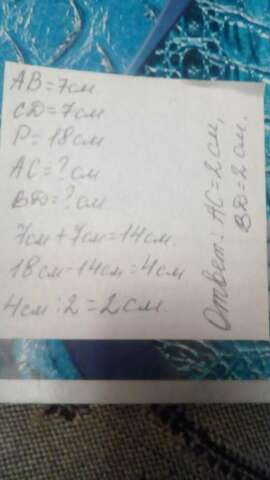 AB=7см
CD=7см
P=18см
AC=?см
BD=?см
7см+7см=14см.
18см-14см=4см
4см:2=2см.
Ответ: AC=2см,
BD=2см.